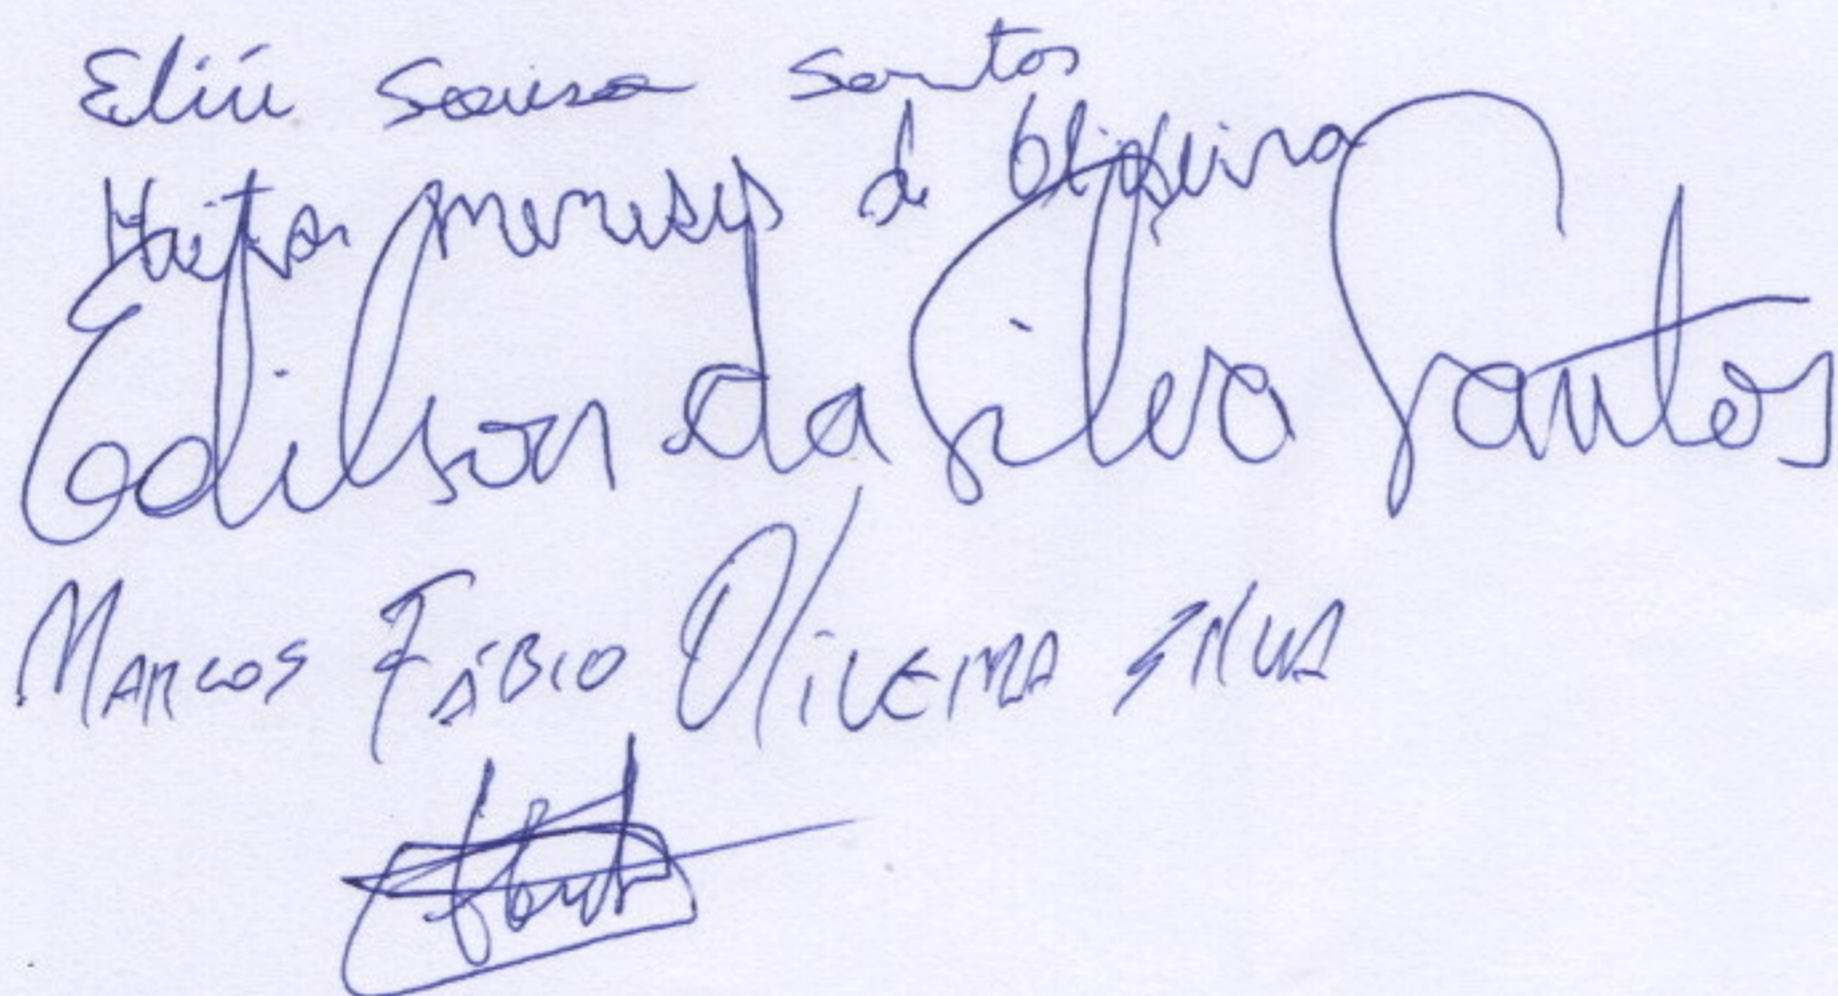 Eliú Sousa Santos
Heitor Meneses de Oliveira
Edilson da Silva Santos
MARCOS FÁBIO OLIVEIRA SILVA